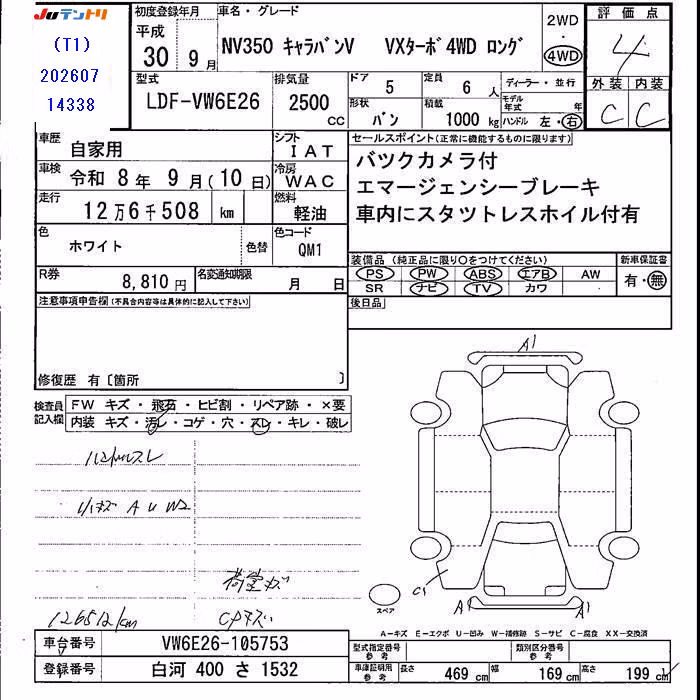 Juテントリ
(T1)
202607
14338
初度登録年月
平成
30年 9月
車名・グレード
NV350 キャラバンV VXターボ4WD ロング
2WD
・
4WD
評価点
4
外装 内装
C C
型式
LDF-VW6E26
排気量
2500 CC
ドア 5
定員 6人
形状 バン
積載 1000 kg
ディーラー・並行
モデル年式 年
ハンドル 左・右
車歴 自家用
シフト IAT
車検 令和 8年 9月(10日)
冷房 WAC
走行 12万6千508 km
燃料 軽油
色 ホワイト 色替
色コード QM1
R券 8,810円
名変通知期限 月 日
セールスポイント(正常に機能するものに限ります)
バツクカメラ付
エマージェンシーブレーキ
車内にスタツトレスホイル付有
装備品(純正品に限り○をつけてください)
PS PW ABS エアB AW
SR ナビ TV カワ
新車保証書
有・無
後日品
注意事項申告欄(不具合内容等は具体的に記入して下さい)
修復歴 有〔箇所 〕
検査員記入欄
FW キズ・飛石・ヒビ割・リペア跡・×要
内装 キズ・汚レ・コゲ・穴・スレ・キレ・破レ
ハンドルスレ
小キズ A U W2
荷室ガ
CPキズ
126512km
A1
C1
A1 A1
スペア
A-キズ E-エクボ U-凹み W-補修跡 S-サビ C-腐食 XX-交換済
車台番号 VW6E26-105753
登録番号 白河 400 さ 1532
型式指定番号 参考
類別区分番号 参考
車庫証明用 参考
長さ 469 cm 幅 169 cm 高さ 199 cm